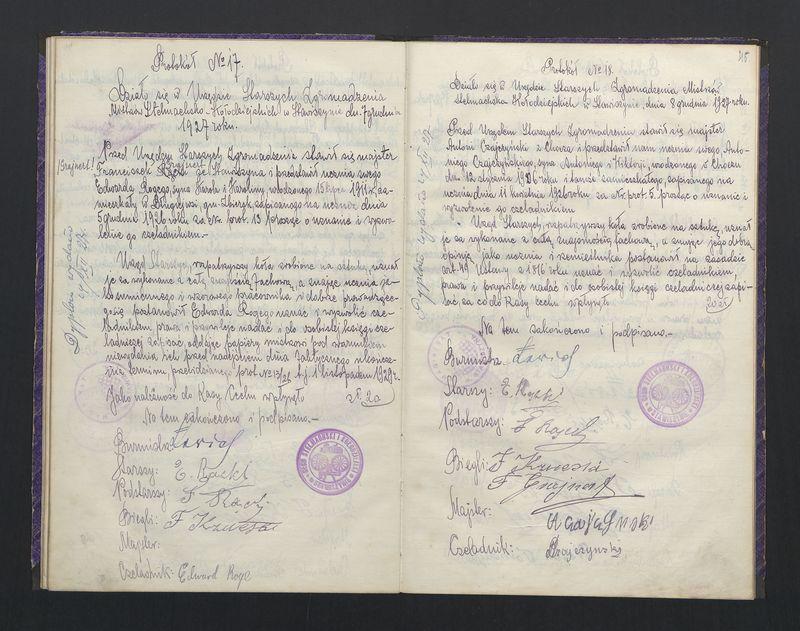 Protokół № 17.
Działo się w Urzędzie Starszych Zgromadzenia
Majstrów Stelmachsko-Kołodziejskich w Stawiszynie dn. 7 grudnia
1927 roku.
Przed Urzędem Starszych Zgromadzenia stawił się majster
Brajnert!
Franciszek ze Stawiszyna i przedstawił ucznia swego
Edwarda Rogego, syna Karola i Karoliny, urodzonego 15 lipca 1911 r. za-
mieszkały w Długiejwsi gm. Zbiersk, zapisanego na ucznia dnia
5 grudnia 1926 roku za Nr. prot. 13 i prosząc o uznanie i wyzwo-
lenie go czeladnikiem.-
Urząd Starszych, rozpatrzywszy koła zrobione na sztukę, uznał
je za wykonane z całą znajomością fachową, a znając ucznia ze
sumiennego i wzorowego pracownika i dobrze prowadzące-
go się postanowił Edwarda Rogego uznać i wyzwolić cze-
ladnikiem, prawa i przywileje nadać i do osobistej księgi cze-
ladniczej zapisać, oddając papiery mistrzowi pod warunkiem
niewydania ich przed nadejściem dnia faktycznego ukończe-
nia terminu przewidzianego prot. № 13/26 t. j. 1 listopadem 1928 r.
Jako należność do Kasy Cechu wpłynęło zł. 20
Na tem zakończono i podpisano.-
Dyplom wydano
Burmistrz:
Starszy: E. Racki
Podstarszy:
Biegli:
Majster:
Czeladnik: Edward Roge
Protokół № 18.
Działo się w Urzędzie Starszych Zgromadzenia Majstrów
Stelmachsko-Kołodziejskich w Stawiszynie, dnia 8 grudnia 1927 roku.
Przed Urzędem Starszych Zgromadzenia stawił się majster
Antoni Czajczyński z Chocza i przedstawił nam ucznia swego, Anto-
niego Czajczyńskiego, syna Antoniego i Wiktorji, urodzonego w Choczu
dn. 12 stycznia 1906 roku i tamże zamieszkałego, zapisanego na
ucznia dnia 11 kwietnia 1926 roku za Nr. prot. 5. prosząc o uznanie i
wyzwolenie go czeladnikiem.
Urząd Starszych, rozpatrzywszy koła zrobione na sztukę, uznał
je za wykonane z całą znajomością fachową, a znając jego dobrą
opinję jako ucznia i rzemieślnika postanowił na zasadzie
art. 49 Ustawy z 1816 roku uznać i wyzwolić czeladnikiem,
prawa i przywileje nadać i do osobistej księgi czeladniczej zapi-
sać, za co do Kasy Cechu wpłynęło 20 zł
Na tem zakończono i podpisano.-
Dyplom wydano
Burmistrz:
Starszy: E. Racki
Podstarszy:
Biegli:
Majster:
Czeladnik: